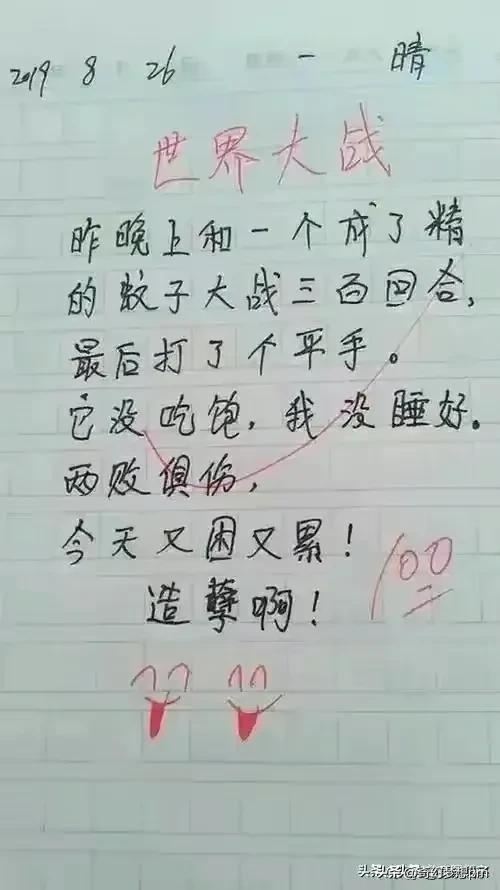 2019 8 26 一 晴
世界大战
昨晚上和一个成了精
的蚊子大战三百回合,
最后打了个平手。
它没吃饱,我没睡好。
两败俱伤,
今天又困又累!
造孽啊!
100